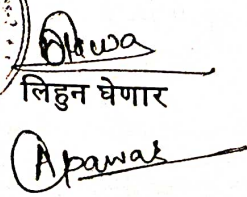 लिहुन घेणार
Apawar